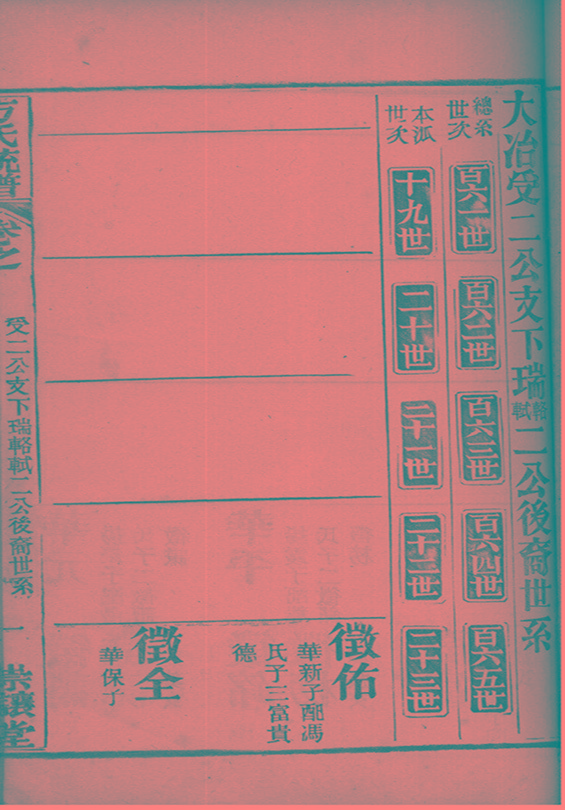 大冶受二公支下瑞輅軾二公後裔世系
總系世次
百六一世
百六二世
百六三世
百六四世
百六五世
本派世次
十九世
二十世
二十一世
二十二世
二十三世
徵佑
華新子配馮
氏子三富貴
德
徵全
華保子
方氏統譜
卷之
受二公支下瑞輅軾二公後裔世系
一
崇讓堂